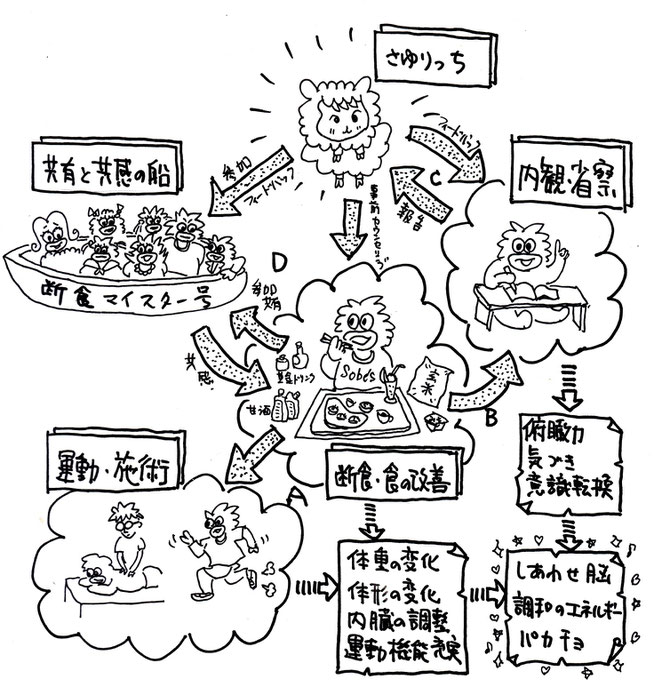 さゆりっち
フィードバック
共有と共感の船
参加
フィードバック
C
報告
内観・省察
事前カウンセリング
断食マイスター号
D
参加
共有
共感
酵素ドリンク
甘酒
Sobe's
玄米
B
運動・施術
A
断食・食の改善
俯瞰力
気づき
意識転換
体重の変化
体形の変化
内臓の調整
運動機能
しあわせ脳
調和のエネルギー
バカチョ